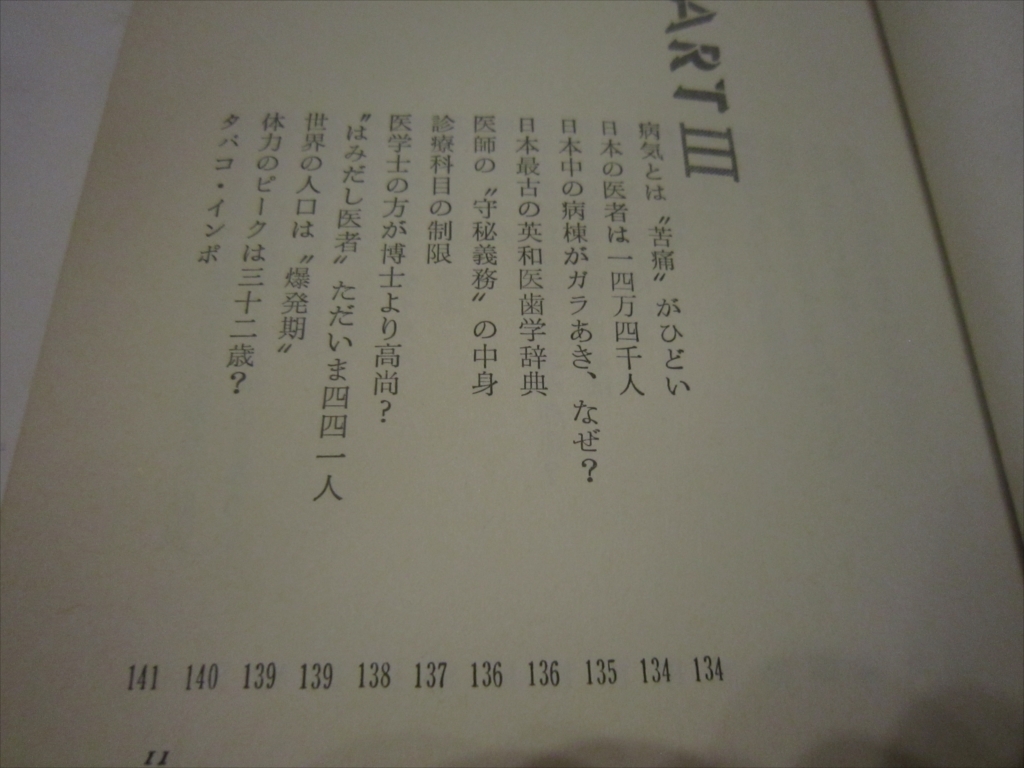 ART III
病気とは〝苦痛〟がひどい 134
日本の医者は一四万四千人 134
日本中の病棟がガラあき、なぜ? 135
日本最古の英和医歯学辞典 136
医師の〝守秘義務〟の中身 136
診療科目の制限 137
医学士の方が博士より高尚? 138
〝はみだし医者〟ただいま四四一人 139
世界の人口は〝爆発期〟 139
体力のピークは三十二歳? 140
タバコ・インポ 141
11